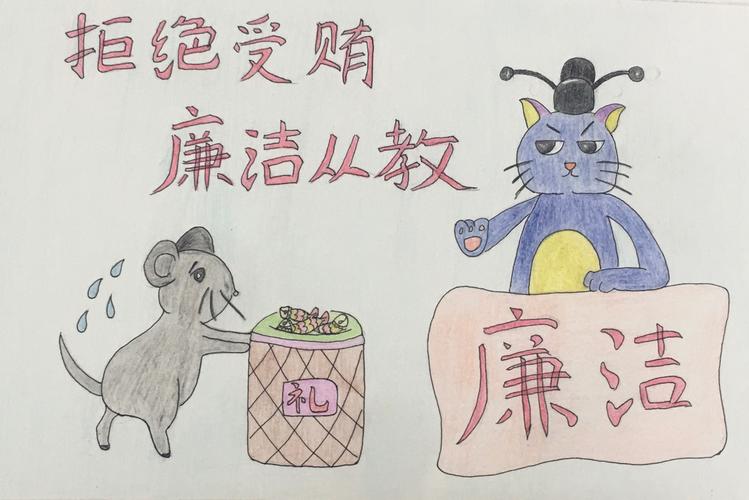 拒绝受贿
廉洁从教
礼
廉洁